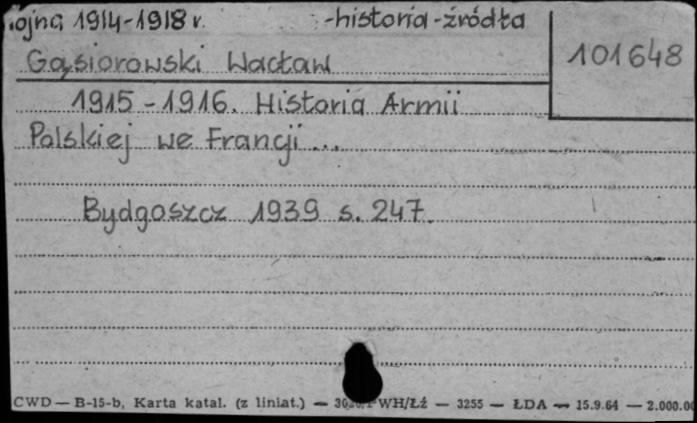 ojna 1914-1918 r. -historia-źródła
101648
Gąsiorowski Wacław
1915-1916. Historia Armii
Polskiej we Francji...
Bydgoszcz 1939 s. 247.
CWD — B-15-b, Karta katal. (z liniat.) — WH/Łź — 3255 — ŁDA — 15.9.64 — 2.000.00